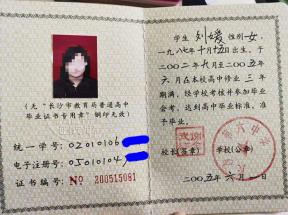 (无"长沙市教育局普通高中
毕业证书专用章"钢印无效)
统一学号: 02010106
电子注册号: 05010104
证书编号: № 200515081
学生 刘媛 性别 女,
一九八七年十月十五日生, 于
二〇〇二年九月至二〇〇五年
六月在本校高中修业 三 年
期满, 经学校考核并参加毕业
会考, 达到高中毕业标准, 准
予毕业。
校长(签章) 学校(公章)
二〇〇五年六月一日